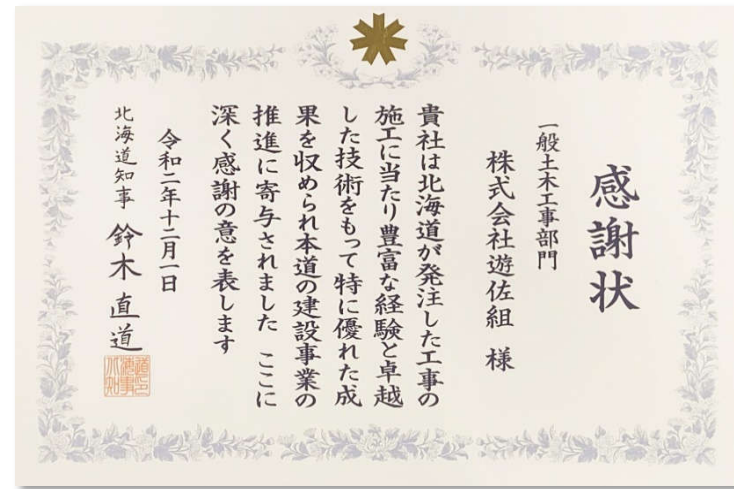 感謝状
一般土木工事部門
株式会社遊佐組 様
貴社は北海道が発注した工事の
施工に当たり豊富な経験と卓越
した技術をもって特に優れた成
果を収められ本道の建設事業の
推進に寄与されました ここに
深く感謝の意を表します
令和二年十二月一日
北海道知事 鈴木直道